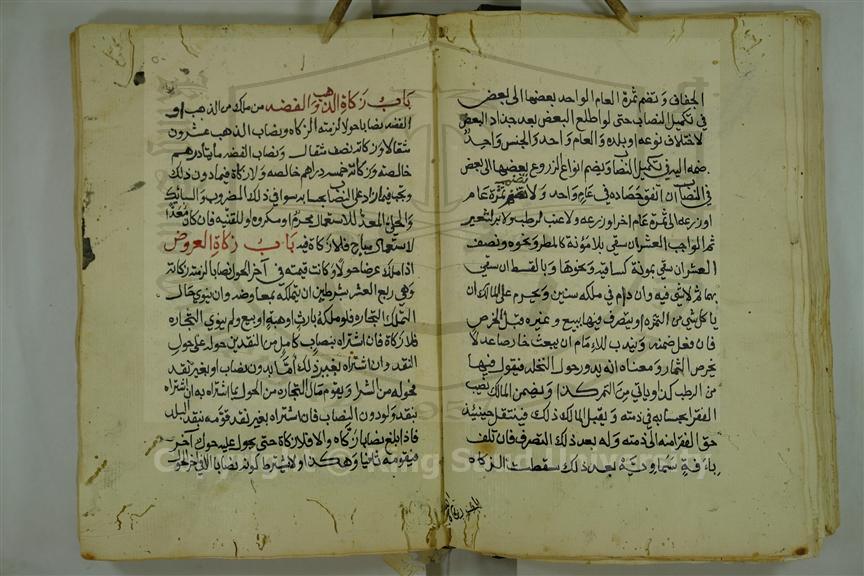 الجفاف وتضم ثمرة العام الواحد بعضها الى بعض
في تكميل النصاب حتى لو اطلع البعض بعد جداد البعض
لاختلاف نوعه او بلده والعام واحد والجنس واحد
ضمه اليه في تكميل النصاب ويضم انواع الزروع بعضها الى بعض
في النصاب ان اتفق حصاده في عام واحد ولا تضم ثمرة عام
او زرعه الى ثمرة عام اخر او زرعه ولا عنب لرطب ولا بر لشعير
ثم الواجب العشر ان سقي بلا مؤنة كالمطر ونحوه ونصف
العشر ان سقي بمونة كساقية ونحوها وبالقسط ان سقي
بهما ثم لا شي فيه وان دام في ملكه سنين ويحرم على المالك ان
ياكل شي من الثمرة او يتصرف فيها ببيع وغيره قبل الخرص
فان فعل ضمنه ويندب للامام ان يبعث خارصا عدلا
يخرص الثمار ومعناه انه يدور حول النخله فيقول فيها
من الرطب كذا وياتي منه التمر كذا ويضمن المالك نصيب
الفقرا بحسابه في ذمته ويقبل المالك ذلك فينتقل حينئذ
حق الفقرا منه الى ذمته وله بعد ذلك التصرف فان تلف
بافة سماوية بعد ذلك سقطت الزكاه
باب زكاة الذهب والفضه من ملك من الذهب او
الفضه نصابا حولا لزمته الزكاه ونصاب الذهب عشرون
مثقالا وزكاته نصف مثقال ونصاب الفضه مايتا درهم
خالصه وزكاته خمسه دراهم خالصه ولا زكاة فيما دون ذلك
وتجب فيما زاد على النصاب بحسابه سوا في ذلك المضروب والسبائك
والحلي المعد للاستعمال محرم او مكروه او للقنيه فان كان معدا
لاستعمال مباح فلا زكاة فيه باب زكاة العروض
اذا ملك عرضا حولا وكانت قيمته في آخر الحول نصابا لزمته زكاته
وهي ربع العشر بشرطين ان يتملكه بمعاوضه وان ينوي حال
التملك التجاره فلو ملكه بارث او هبة او بيع ولم ينوي التجاره
فلا زكاة فان اشتراه بنصاب كامل من النقدين حوله على حول
النقد وان اشتراه بغير ذلك اما بدون نصاب او بغير نقد
فحوله من الشرا ويقوم مال التجاره من الحول بما اشتراه به ان اشتراه
بنقد ولو دون النصاب فان اشتراه بغير نقد قومه بنقد البلد
فاذا بلغ نصابا زكاه والا فلا زكاة حتى يحول عليه حول آخر
فيقومه ثانيا وهكذا ولا يشترط كونه نصابا الا في اخر الحول
Copyright © King Saud University